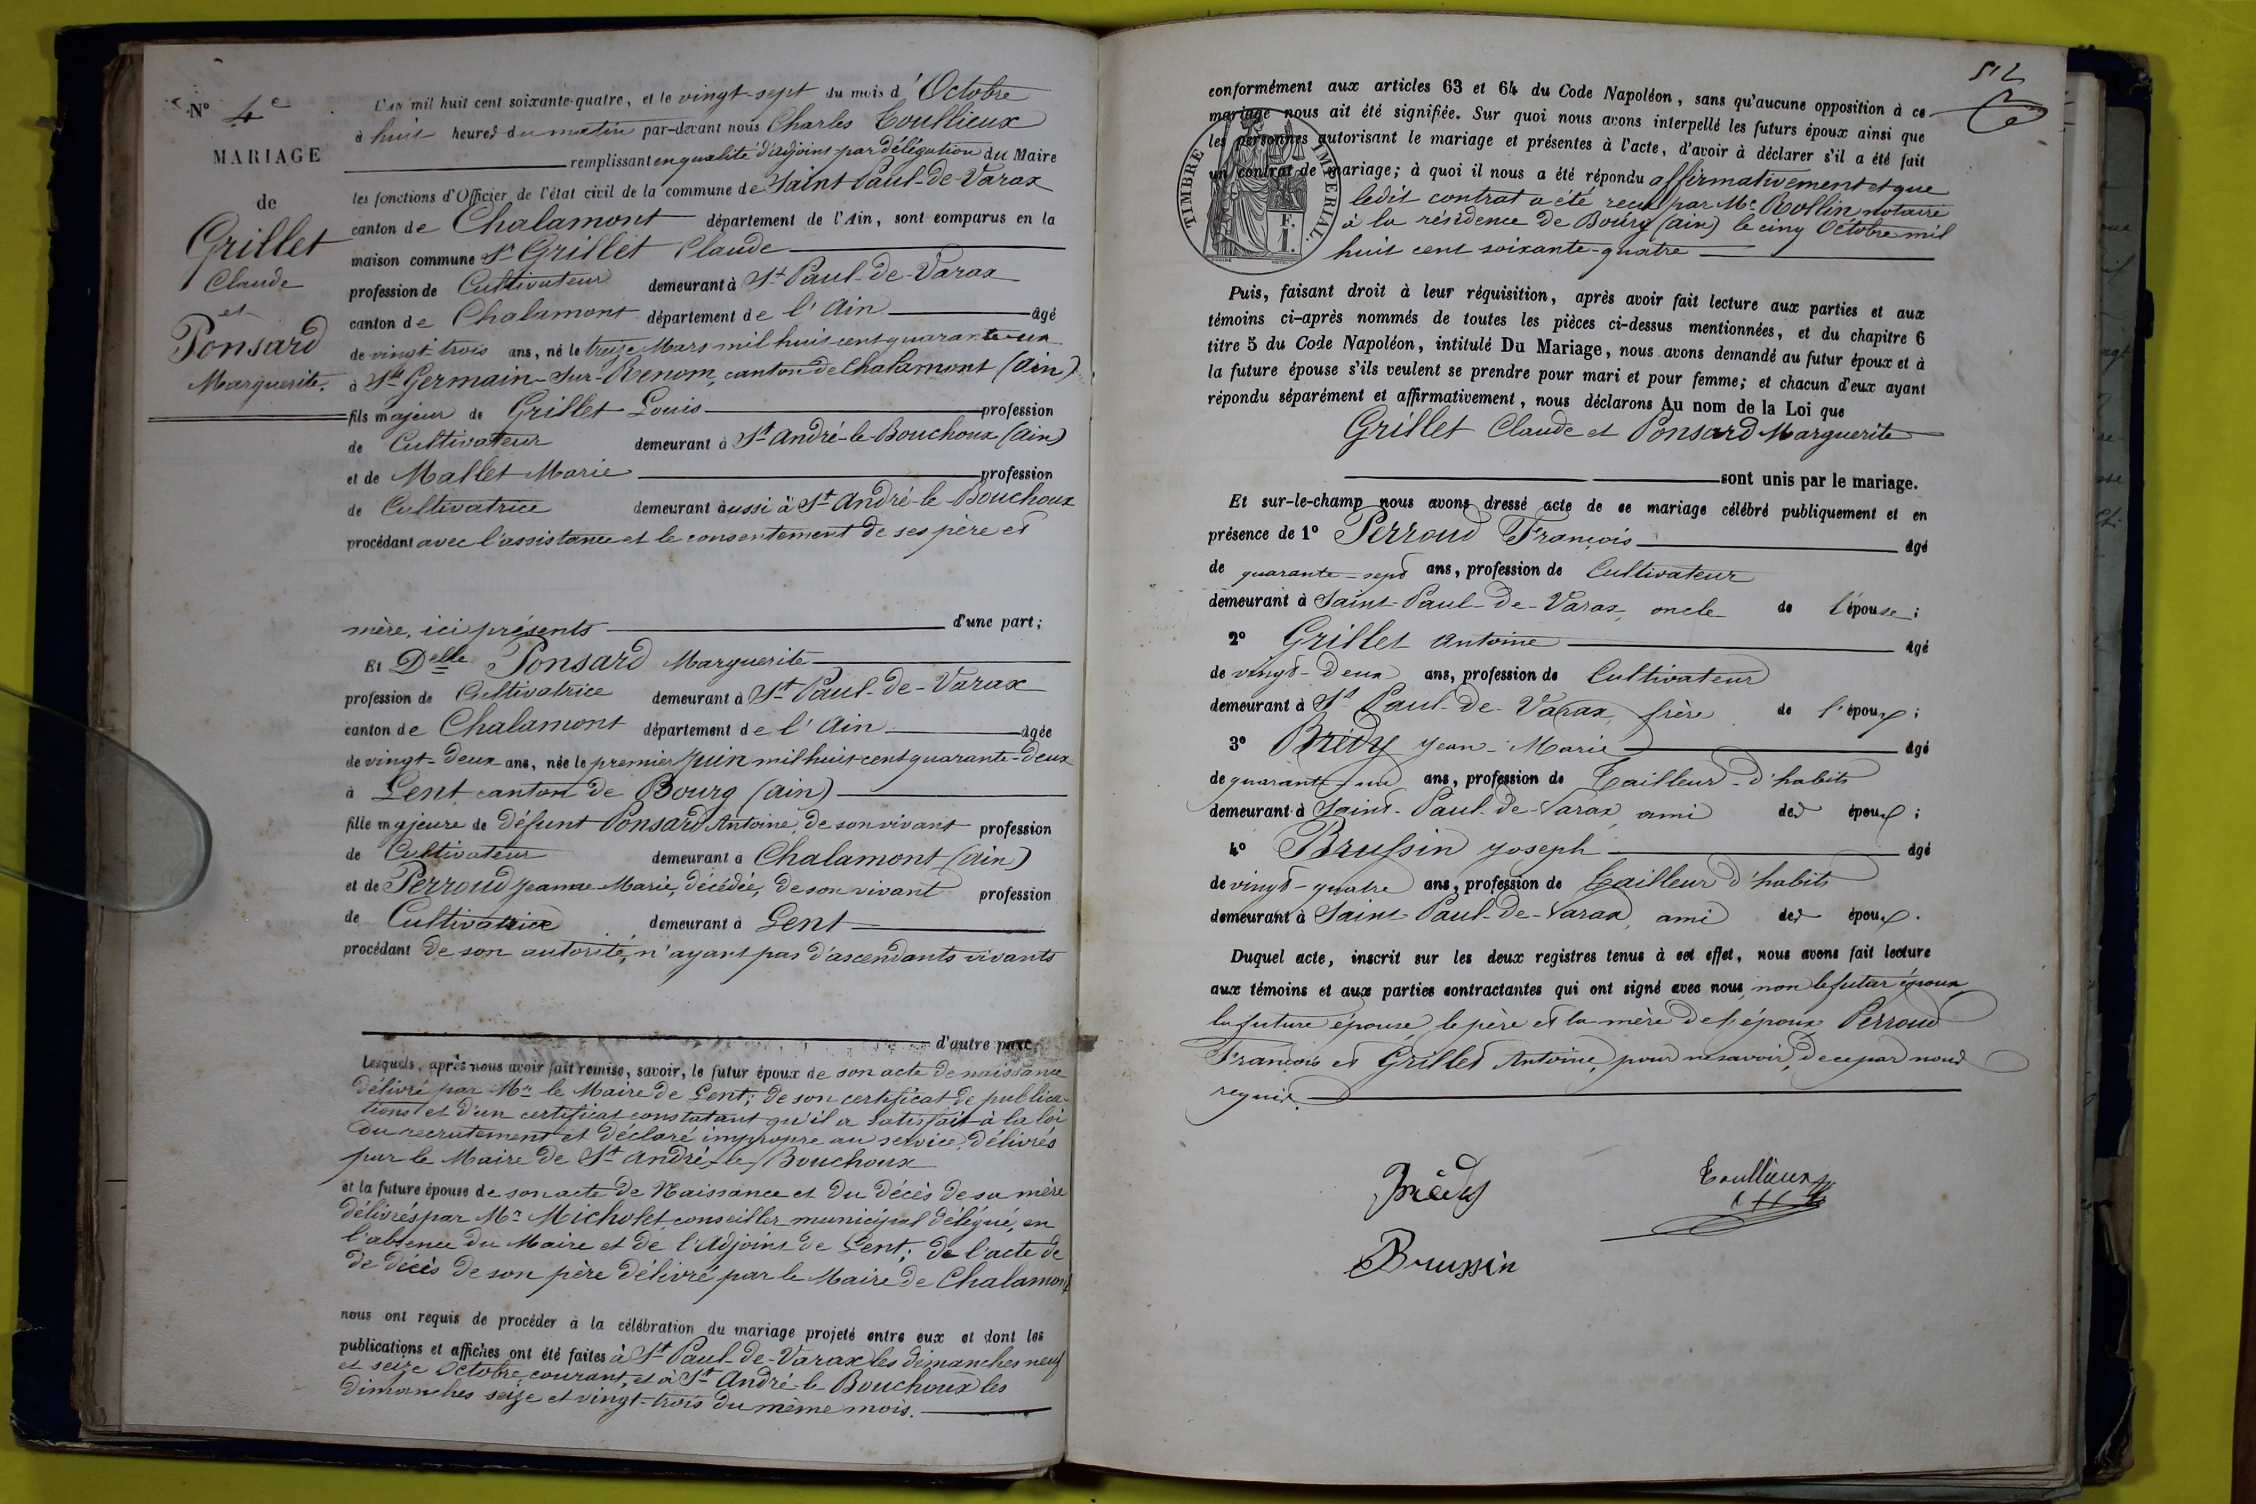 N° 4e
MARIAGE
de
Grillet
Claude
et
Ponsard
Marguerite.
L'an mil huit cent soixante-quatre, et le vingt-sept du mois d'Octobre
à huit heures du matin par-devant nous Charles Toullieux
remplissant en qualité d'adjoint par délégation du Maire
les fonctions d'Officier de l'état civil de la commune de Saint Paul-de-Varax
canton de Chalamont département de l'Ain, sont comparus en la
maison commune Sr Grillet Claude
profession de Cultivateur demeurant à St Paul-de-Varax
canton de Chalamont département de l'Ain âgé
de vingt-trois ans, né le treize Mars mil huit cent quarante-un
à St Germain-sur-Renom, canton de Chalamont (Ain)
fils majeur de Grillet Louis profession
de Cultivateur demeurant à St André-le-Bouchoux (Ain)
et de Mallet Marie profession
de Cultivatrice demeurant aussi à St André-le-Bouchoux
procédant avec l'assistance et le consentement de ses père et
mère, ici présents d'une part;
Et Delle Ponsard Marguerite
profession de Cultivatrice demeurant à St Paul-de-Varax
canton de Chalamont département de l'Ain âgée
de vingt-deux ans, née le premier Juin mil huit cent quarante-deux
à Lent canton de Bourg (Ain)
fille majeure de défunt Ponsard Antoine, de son vivant profession
de Cultivateur demeurant à Chalamont (Ain)
et de Perroud Jeanne-Marie, décédée, de son vivant profession
de Cultivatrice demeurant à Lent
procédant de son autorité, n'ayant pas d'ascendants vivants
d'autre part.
Lesquels, après nous avoir fait remise, savoir, le futur époux de son acte de naissance
délivré par Mr le Maire de Lent; de son certificat de publica-
tions et d'un certificat constatant qu'il a satisfait à la loi
du recrutement et déclaré impropre au service, délivrés
par le Maire de St André-le-Bouchoux
et la future épouse de son acte de Naissance et du décès de sa mère
délivrés par Mr Micholet conseiller municipal délégué, en
l'absence du Maire et de l'Adjoint de Lent; de l'acte de
de décès de son père délivré par le Maire de Chalamont
nous ont requis de procéder à la célébration du mariage projeté entre eux et dont les
publications et affiches ont été faites à St Paul-de-Varax les dimanches neuf
et seize Octobre courant, et à St André-le-Bouchoux les
dimanches seize et vingt-trois du même mois.
52
conformément aux articles 63 et 64 du Code Napoléon, sans qu'aucune opposition à ce
mariage nous ait été signifiée. Sur quoi nous avons interpellé les futurs époux ainsi que
les personnes autorisant le mariage et présentes à l'acte, d'avoir à déclarer s'il a été fait
un contrat de mariage; à quoi il nous a été répondu affirmativement et que
ledit contrat a été reçu par Me Rollin notaire
à la résidence de Bourg (Ain) le cinq Octobre mil
huit cent soixante-quatre
TIMBRE IMPERIAL.
E.
I.
Puis, faisant droit à leur réquisition, après avoir fait lecture aux parties et aux
témoins ci-après nommés de toutes les pièces ci-dessus mentionnées, et du chapitre 6
titre 5 du Code Napoléon, intitulé Du Mariage, nous avons demandé au futur époux et à
la future épouse s'ils veulent se prendre pour mari et pour femme; et chacun d'eux ayant
répondu séparément et affirmativement, nous déclarons Au nom de la Loi que
Grillet Claude et Ponsard Marguerite
sont unis par le mariage.
Et sur-le-champ nous avons dressé acte de ce mariage célébré publiquement et en
présence de 1° Perroud François âgé
de quarante-sept ans, profession de Cultivateur
demeurant à Saint-Paul-de-Varax, oncle de l'épouse;
2° Grillet Antoine âgé
de vingt-deux ans, profession de Cultivateur
demeurant à St Paul-de-Varax, frère de l'époux;
3° Brédy Jean-Marie âgé
de quarante-un ans, profession de Tailleur d'habits
demeurant à Saint-Paul-de-Varax, ami des époux;
4° Brussin Joseph âgé
de vingt-quatre ans, profession de Tailleur d'habits
demeurant à Saint-Paul-de-Varax, ami des époux.
Duquel acte, inscrit sur les deux registres tenus à cet effet, nous avons fait lecture
aux témoins et aux parties contractantes qui ont signé avec nous, non le futur époux,
la future épouse, le père et la mère de l'époux, Perroud
François et Grillet Antoine, pour ne savoir, de ce par nous
requis.
Brédy
Toullieux
Brussin